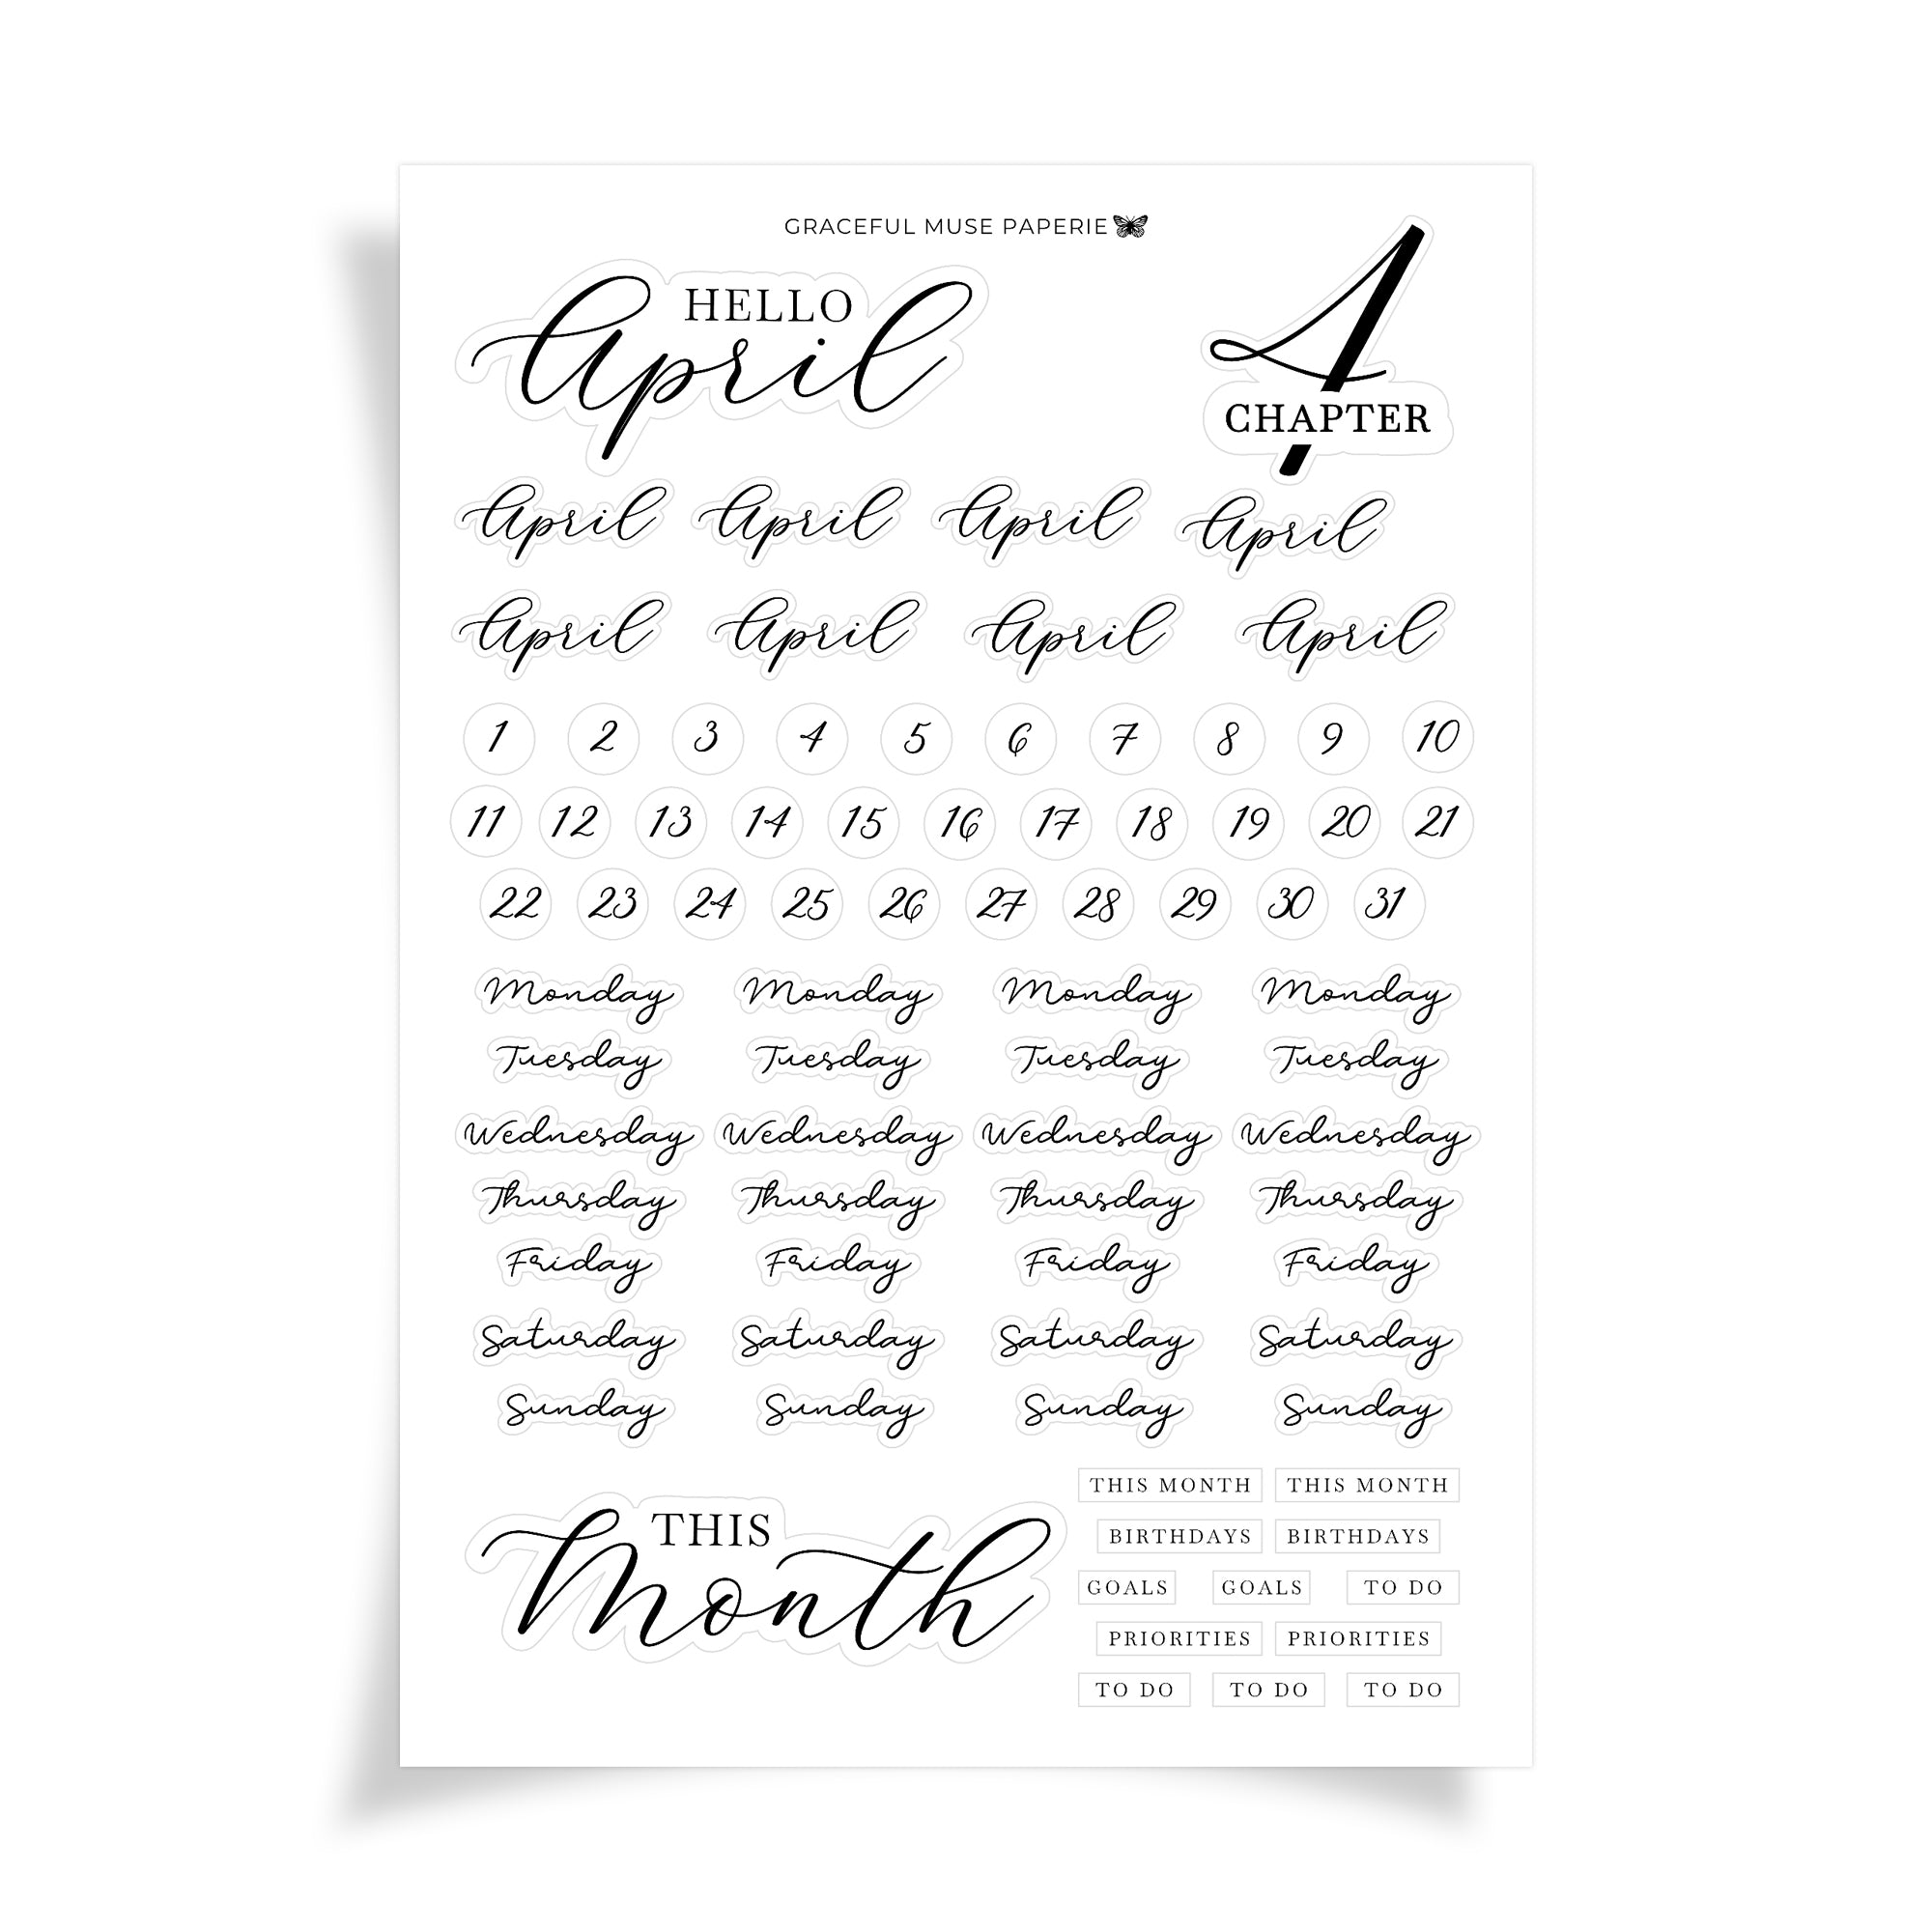 GRACEFUL MUSE PAPERIE
HELLO
April
4
CHAPTER
April April April April
April April April April
1 2 3 4 5 6 7 8 9 10
11 12 13 14 15 16 17 18 19 20 21
22 23 24 25 26 27 28 29 30 31
Monday Monday Monday Monday
Tuesday Tuesday Tuesday Tuesday
Wednesday Wednesday Wednesday Wednesday
Thursday Thursday Thursday Thursday
Friday Friday Friday Friday
Saturday Saturday Saturday Saturday
Sunday Sunday Sunday Sunday
THIS
Month
THIS MONTH THIS MONTH
BIRTHDAYS BIRTHDAYS
GOALS GOALS TO DO
PRIORITIES PRIORITIES
TO DO TO DO TO DO